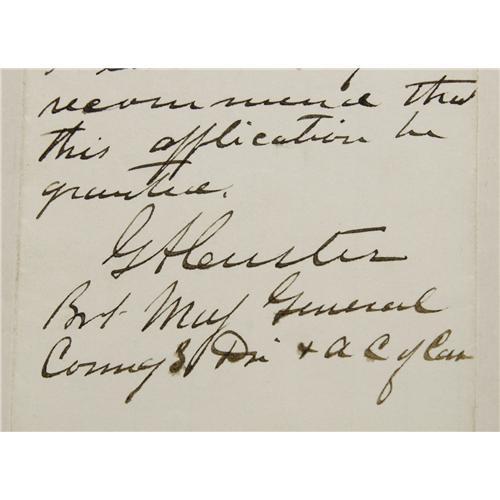 recommend that
this application be
granted.
GACuster
Bvt Maj General
Comdg 3 Div + A C of Cav